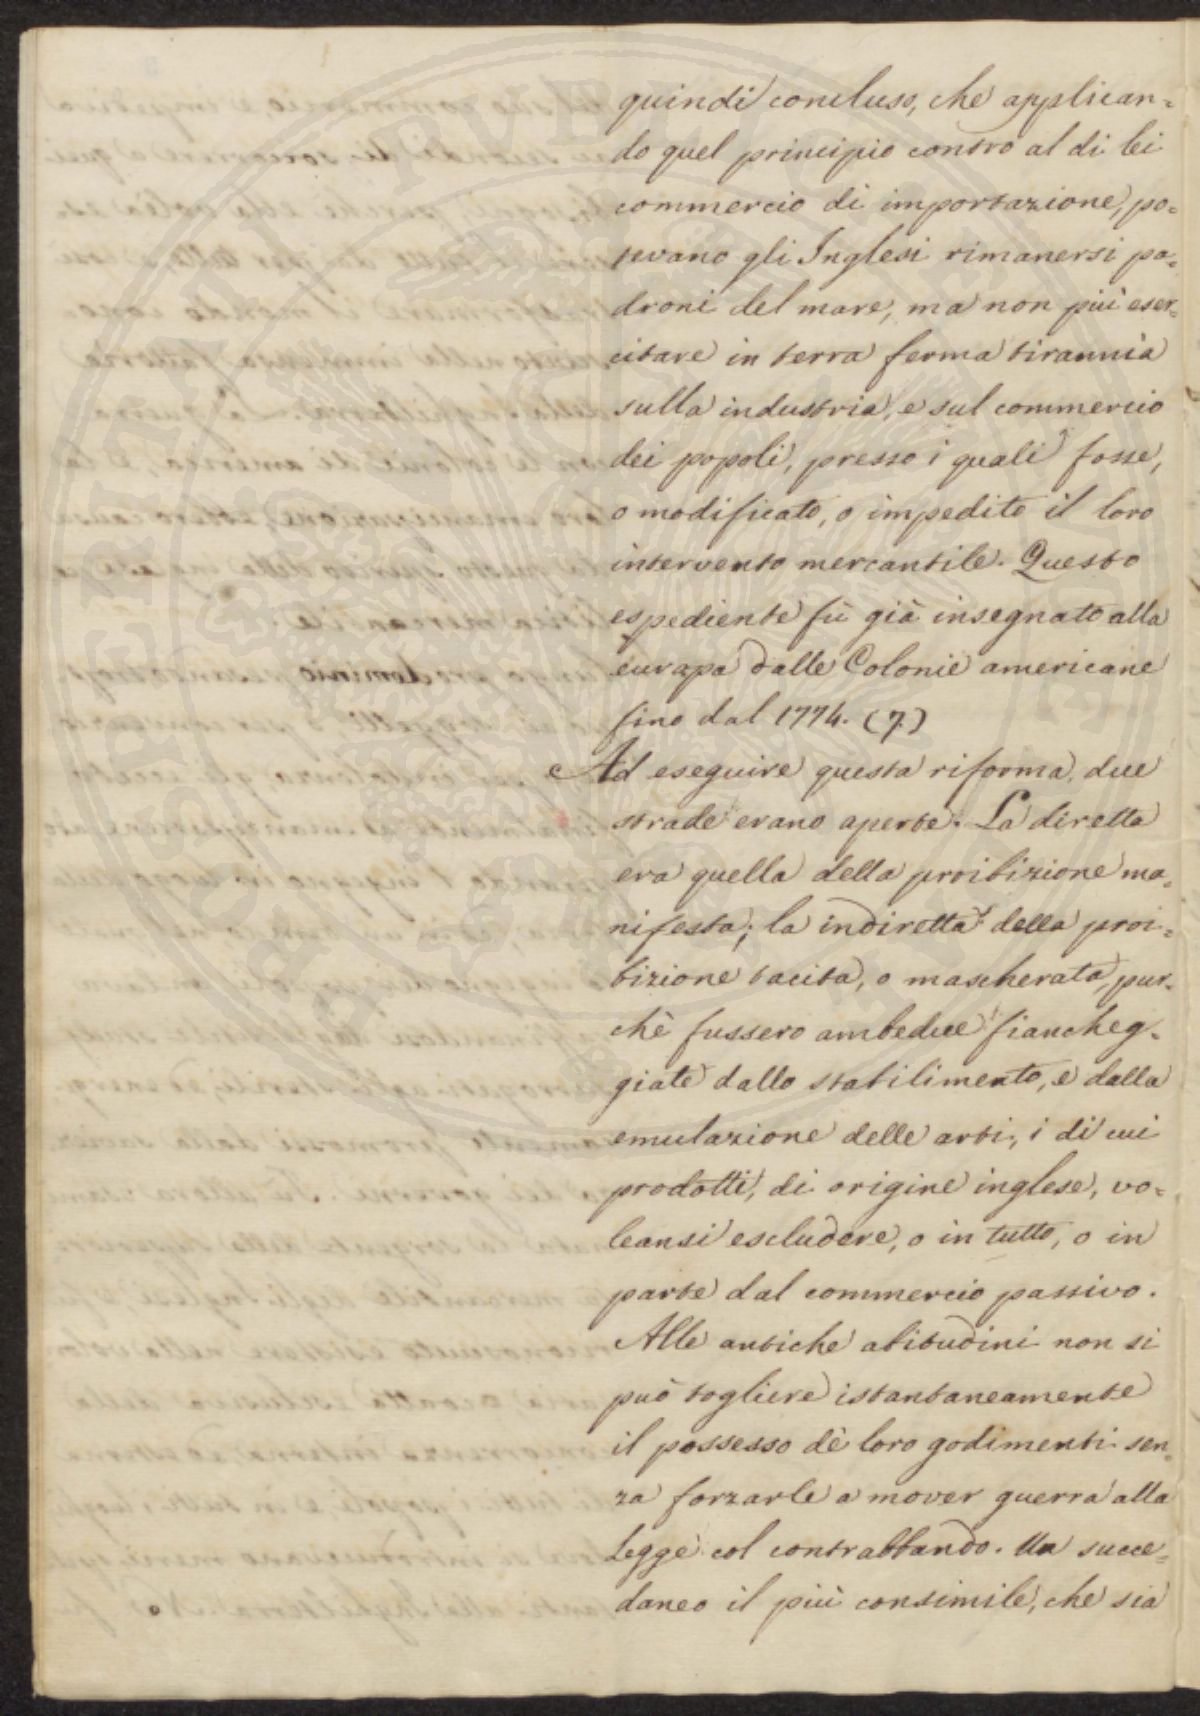 quindi concluso, che applican=
do quel principio contro al di lei
commercio di importazione, po=
tevano gli Inglesi rimanersi pa=
droni del mare, ma non più eser=
citare in terra ferma tirannia
sulla industria, e sul commercio
dei popoli, presso i quali fosse,
o modificato, o impedito il loro
intervento mercantile. Questo
espediente fù già insegnato alla
europa dalle Colonie americane
fino dal 1774. (7.)
Ad eseguire questa riforma, due
strade erano aperte. La diretta
era quella della proibizione ma=
nifesta; la indiretta della proi=
bizione tacita, o mascherata, pur=
chè fussero ambedue fiancheg=
giate dallo stabilimento, e dalla
emulazione delle arti, i di cui
prodotti, di origine inglese, vo=
leansi escludere, o in tutto, o in
parte dal commercio passivo.
Alle antiche abitudini non si
può togliere istantaneamente
il possesso dè loro godimenti sen=
za forzarle a mover guerra alla
Legge col contrabbando. Un succe=
daneo il più consimile, che sia